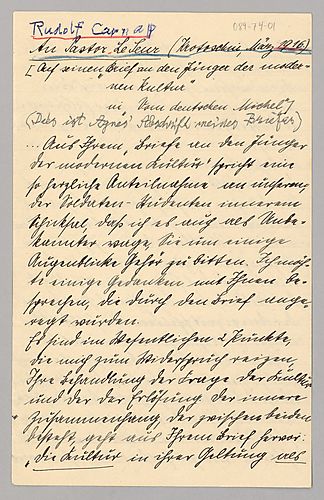 Rudolf Carnap
089-74-01
An Pastor Le Seur (Krotoschin März 1916)
[Auf einen Brief an den Jünger der moder-
nen Kultur
in Vom deutschen Michel]
(Das ist Agnes' Abschrift meines Briefes)
... Aus Ihrem „Briefe an den Jünger
der modernen Kultur" spricht eine
so herzliche Anteilnahme an unserem,
der Soldaten-Studenten innerem
Schicksal, daß ich es auch als Unbe-
kannter wage, Sie um einige
Augenblicke Gehör zu bitten. Ich möch-
te einige Gedanken mit Ihnen be-
sprechen, die durch den Brief ange-
regt wurden.
Es sind im Wesentlichen 2 Punkte,
die mich zum Widerspruch reizen,
Ihre Behandlung der Frage der Kultur
und der der Erlösung. Der innere
Zusammenhang, der zwischen beiden
besteht, geht aus Ihrem Brief hervor.
„Die Kultur in ihrer Geltung als